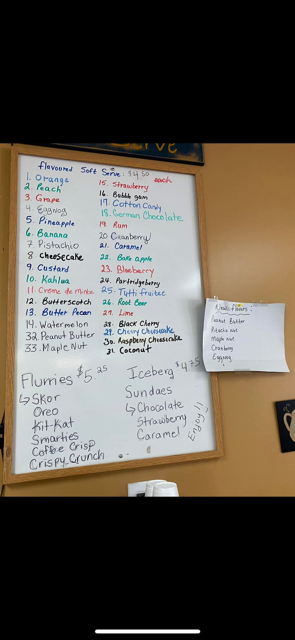 flavoured Soft Serve: $4.50 each
1. Orange
2. Peach
3. Grape
4. Eggnog
5. Pineapple
6. Banana
7. Pistachio
8. Cheesecake
9. Custard
10. Kahlua
11. Creme de Menthe
12. Butterscotch
13. Butter Pecan
14. Watermelon
32. Peanut Butter
33. Maple Nut
15. Strawberry
16. Bubble gum
17. Cotton Candy
18. German Chocolate
19. Rum
20. Cranberry
21. Caramel
22. Bake apple
23. Blueberry
24. Partridgeberry
25. Tutti fruitee
26. Root Beer
27. Lime
28. Black Cherry
29. Cherry Cheesecake
30. Raspberry Cheesecake
31. Coconut
Flurries $5.25
Skor
Oreo
Kit-Kat
Smarties
Coffee Crisp
Crispy Crunch
Iceberg $4.75
Sundaes
Chocolate
Strawberry
Caramel
Enjoy!!
Peanut Butter
Pistachio Nut
Maple Nut
Cranberry
Eggnog